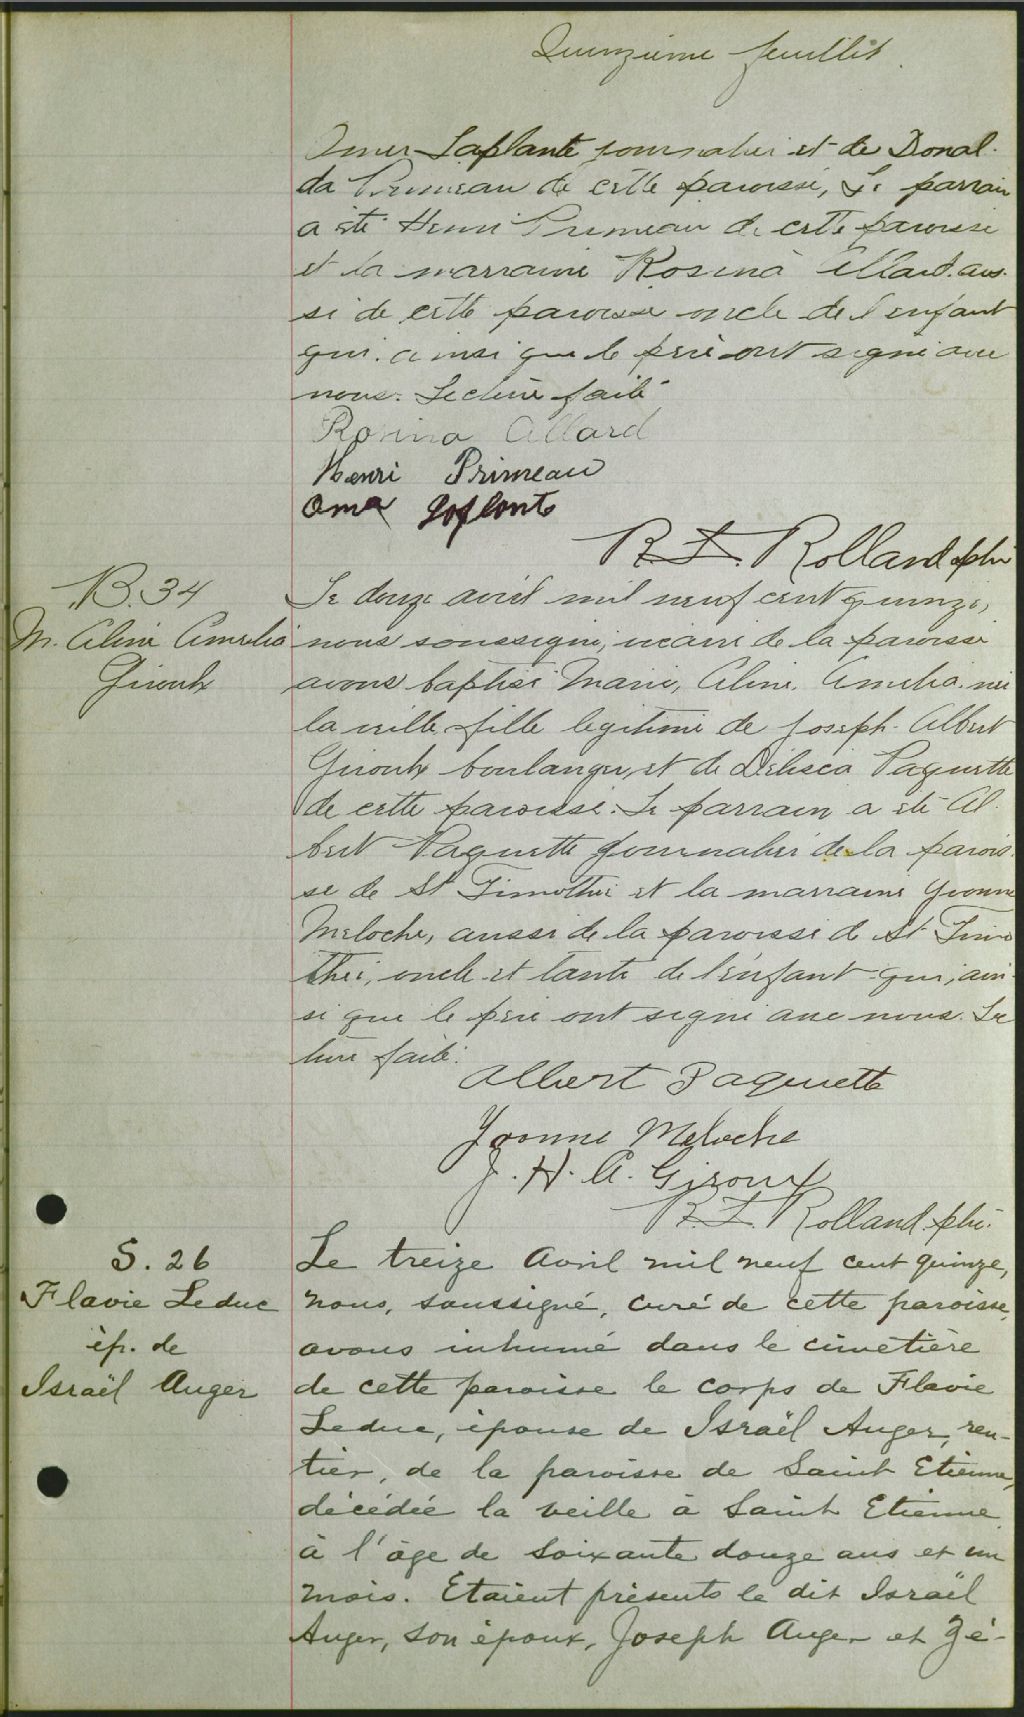 Quinzième feuillet.
Omer Laplante journalier et de Donal-
da Primeau de cette paroisse, Le parrain
a été Henri Primeau de cette paroisse
et la marraine Rosina Allard aus-
si de cette paroisse oncle de l'enfant
qui ainsi que le père ont signé avec
nous. Lecture faite
Rosina Allard
Henri Primeau
Omer Laplante
R. L. Rolland ptre
B. 34
M. Aline Amelia
Giroux
Le douze avril mil neuf cent quinze,
nous soussigné, vicaire de la paroisse
avons baptisé Marie, Aline, Amelia née
la veille fille légitime de Joseph Albert
Giroux boulanger, et de Paquette
de cette paroisse. Le parrain a été Al-
bert Paquette journalier de la parois-
se de St Timothée et la marraine Yvonne
Meloche, aussi de la paroisse de St Timo
thée, oncle et tante de l'enfant qui, ain-
si que le père ont signé avec nous. Lec
ture faite.
Albert Paquette
Yvonne Meloche
J. H. A. Giroux
R. L. Rolland ptre.
S. 26
Flavie Leduc
ép. de
Israël Auger
Le treize Avril mil neuf cent quinze,
nous, soussigné, curé de cette paroisse,
avons inhumé dans le cimetière
de cette paroisse le corps de Flavie
Leduc, épouse de Israël Auger, ren-
tier, de la paroisse de Saint Etienne,
décédée la veille à Saint Etienne
à l'âge de soixante douze ans et un
mois. Etaient présents le dit Israël
Auger, son époux, Joseph Auger et Zé-